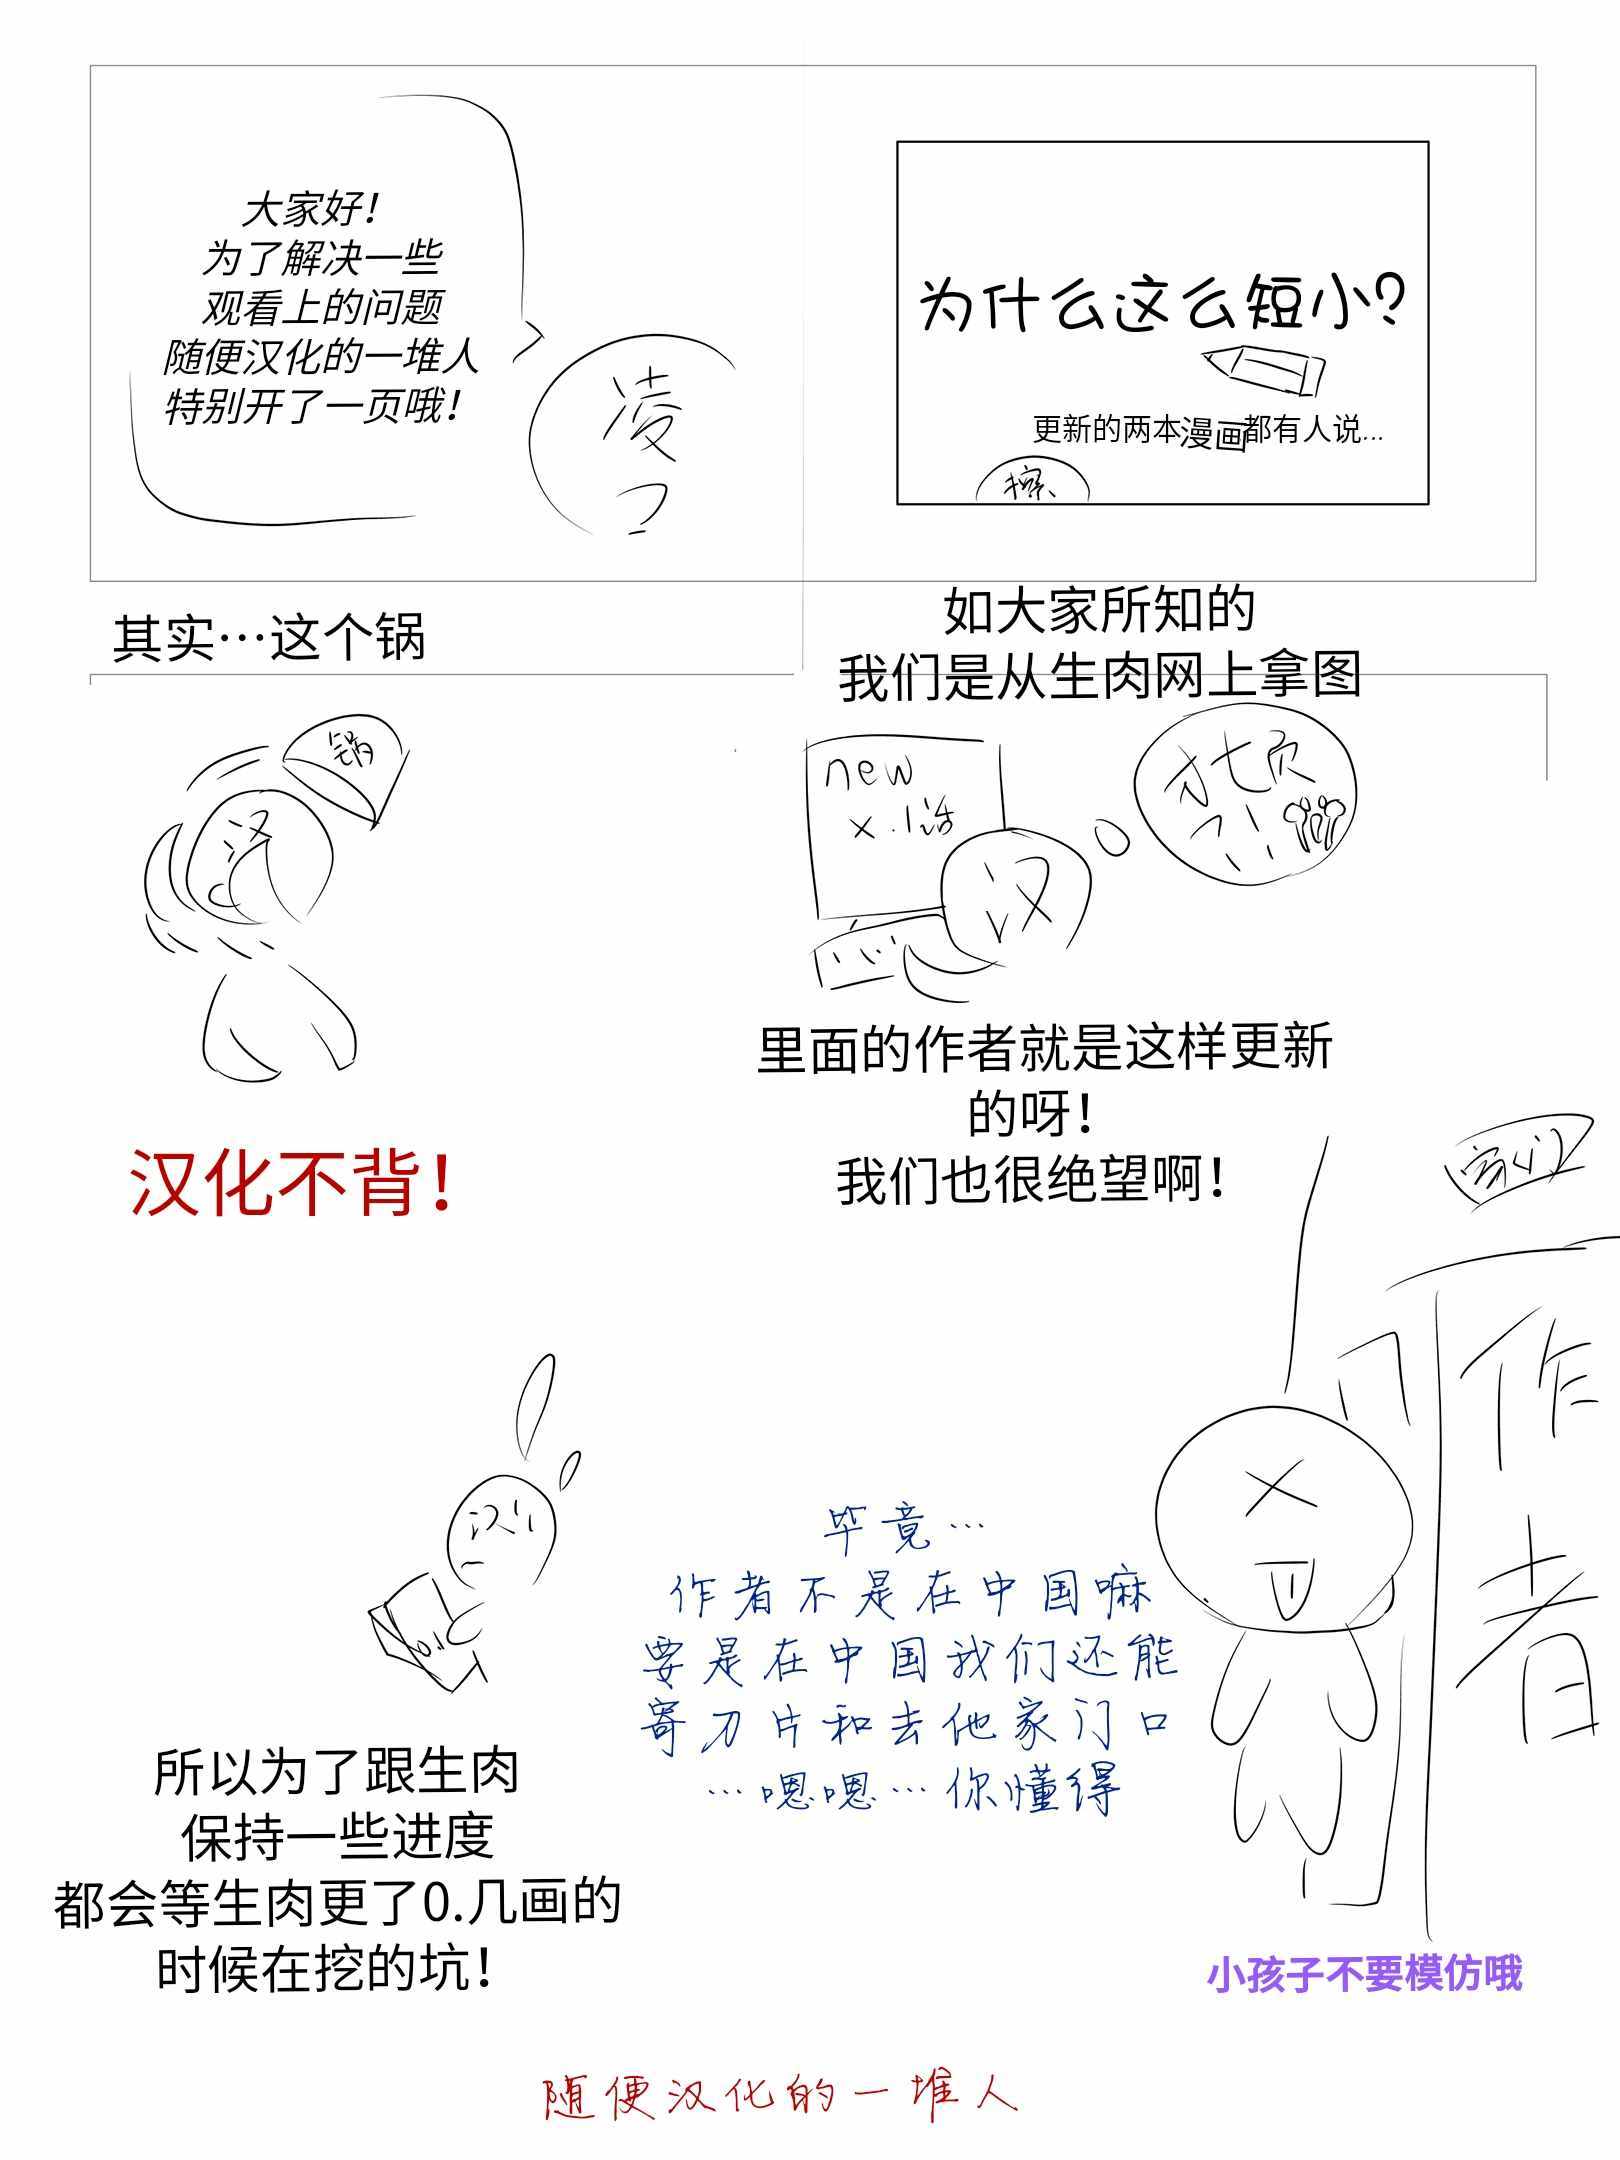 大家好！
为了解决一些
观看上的问题
随便汉化的一堆人
特别开了一页哦！
凌
为什么这么短小？
更新的两本漫画都有人说...
擦
其实…这个锅
锅
汉
汉化不背！
如大家所知的
我们是从生肉网上拿图
new
x.1话
汉
里面的作者就是这样更新
的呀！
我们也很绝望啊！
汉
0.1
所以为了跟生肉
保持一些进度
都会等生肉更了0.几画的
时候在挖的坑！
毕竟…
作者不是在中国嘛
要是在中国我们还能
寄刀片和去他家门口
…嗯嗯…你懂得
作
者
小孩子不要模仿哦
随便汉化的一堆人